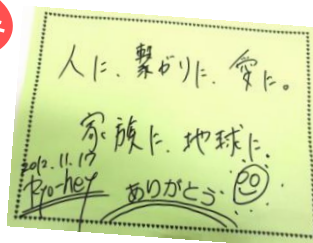 人に、繋がりに、愛に。
家族に、地球に、
2012.11.17
Ryo-hey
ありがとう